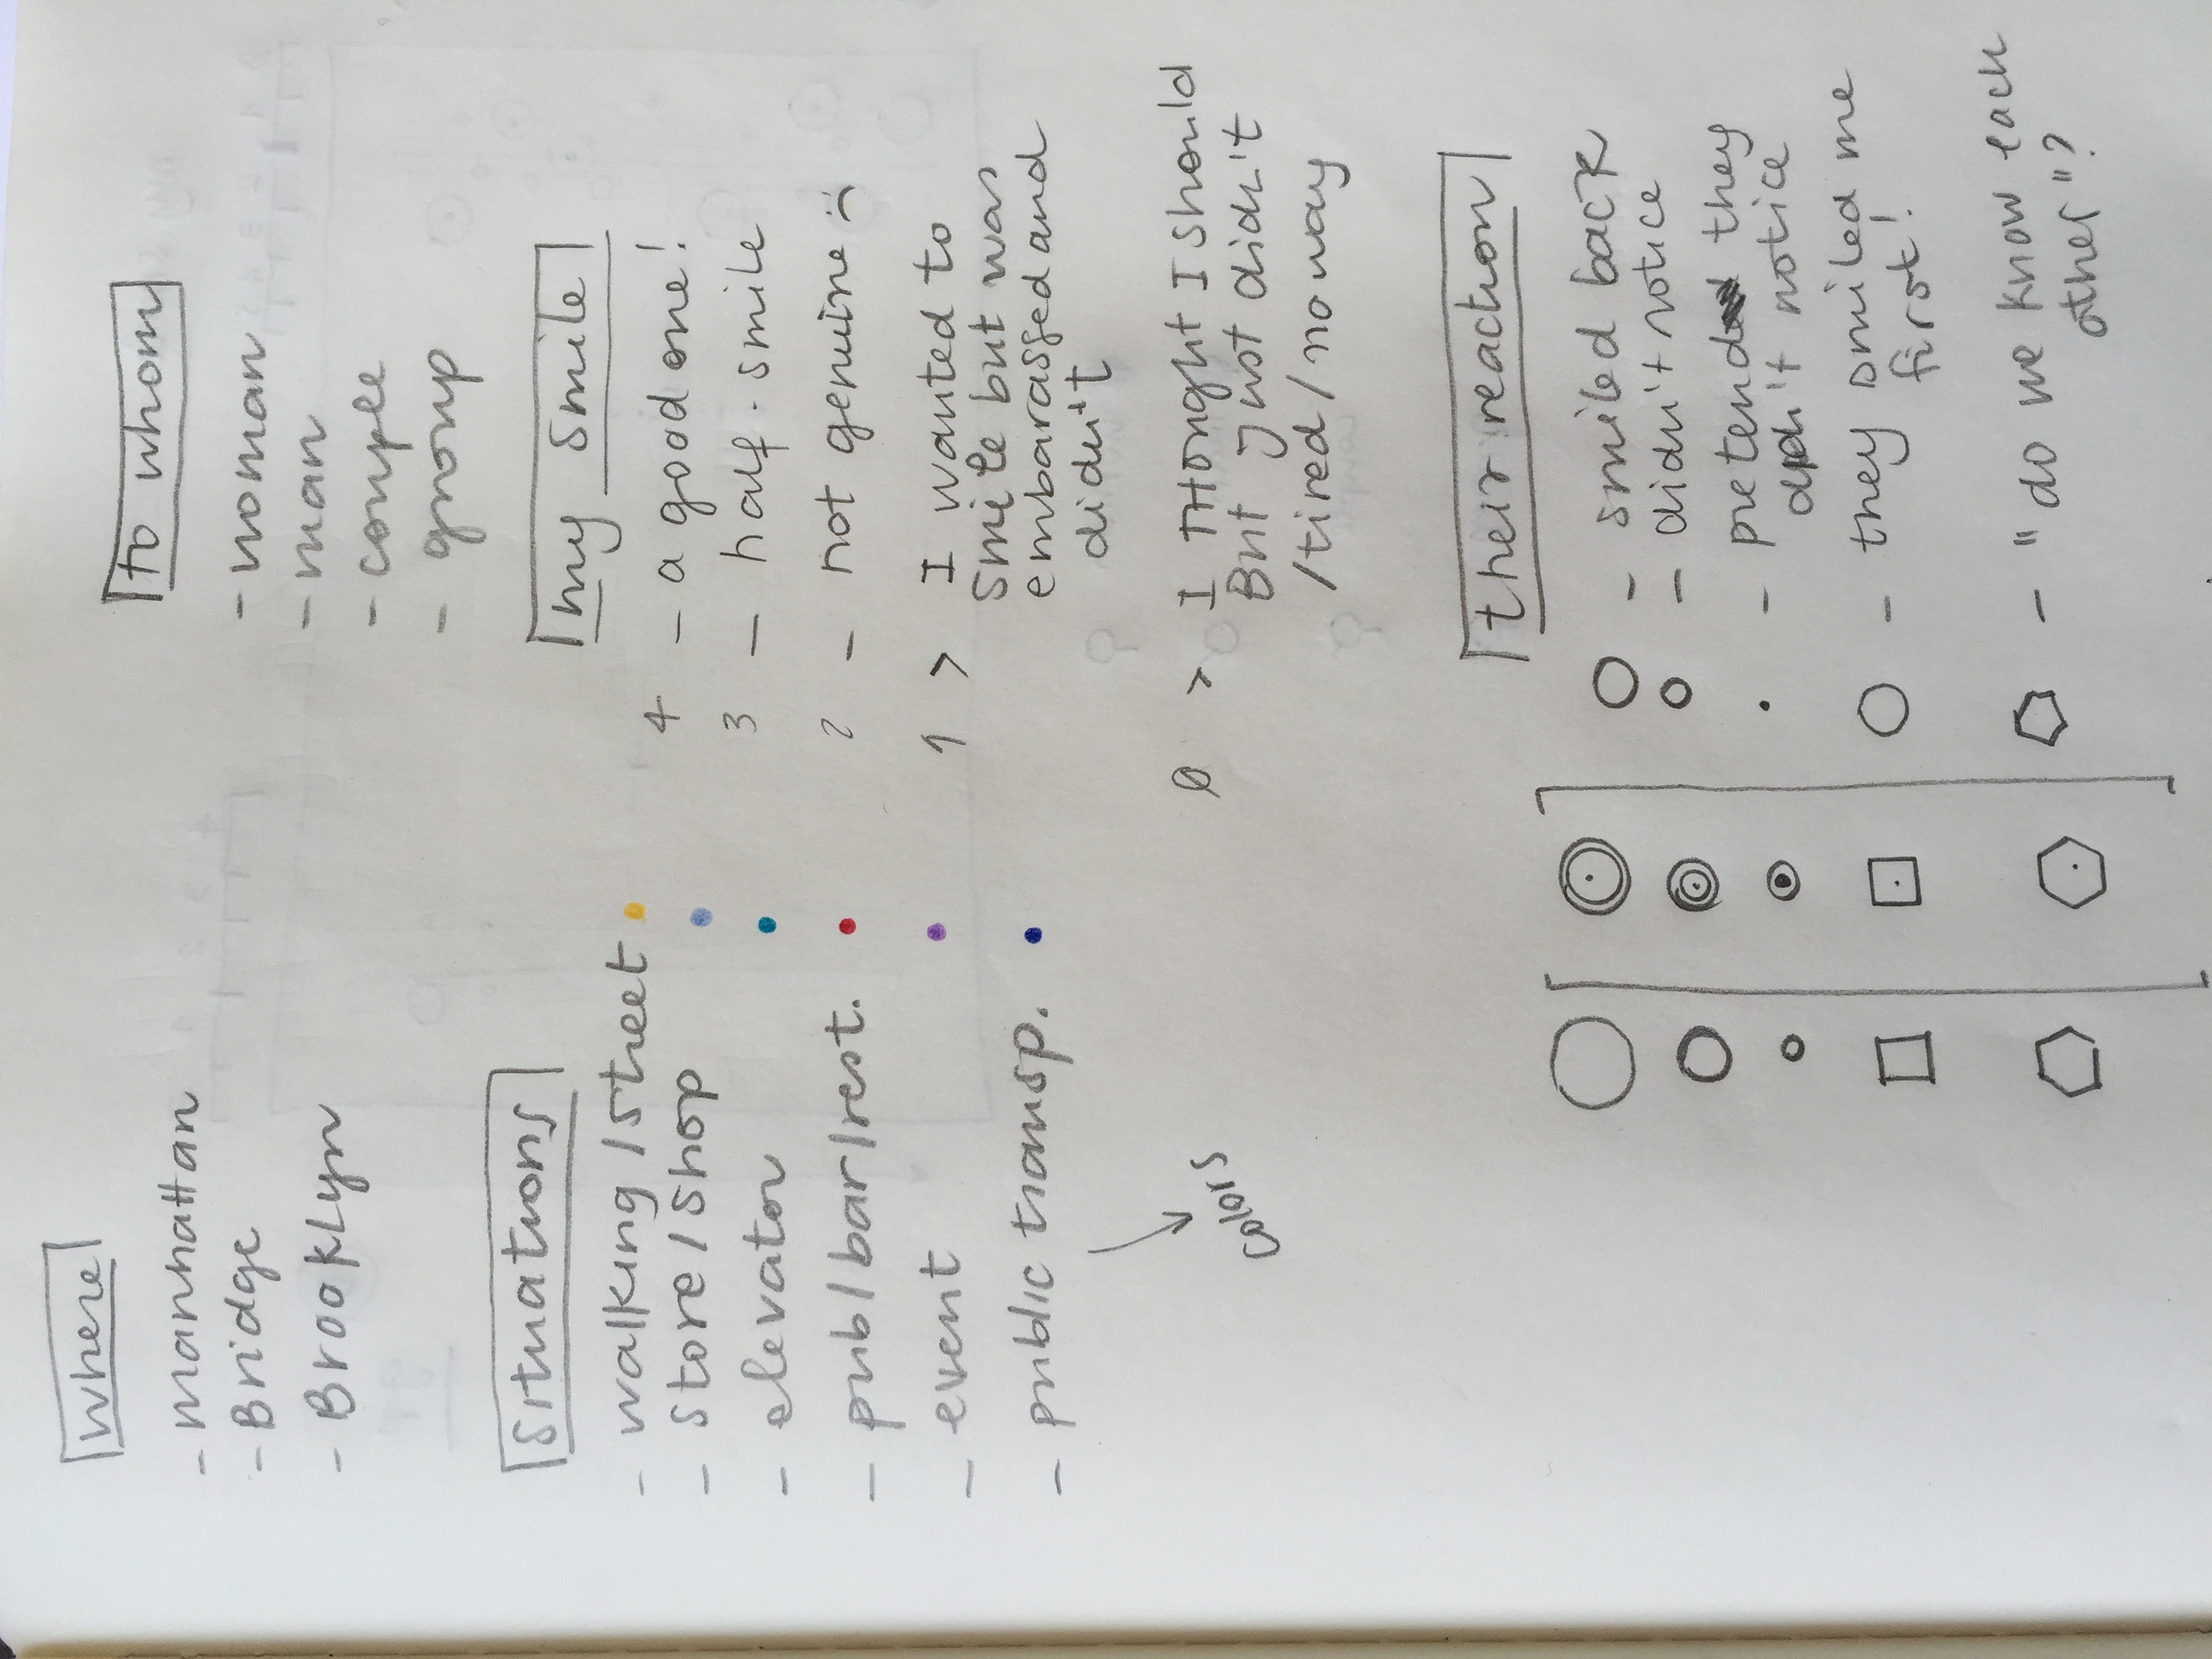 where
- manhattan
- Bridge
- Brooklyn
situations
- walking/street
- store/shop
- elevator
- pub/bar/rest.
- event
- public transp.
colors
to whom
- woman
- man
- couple
- group
my smile
4 - a good one!
3 - half-smile
2 - not genuine :(
1 > I wanted to
smile but was
embarassed and
didn't
0 > I THOught I should
But just didn't
/tired/no way
their reaction
- smiled back
- didn't notice
- pretend they
didn't notice
- they smiled me
first!
- "do we know each
other"?